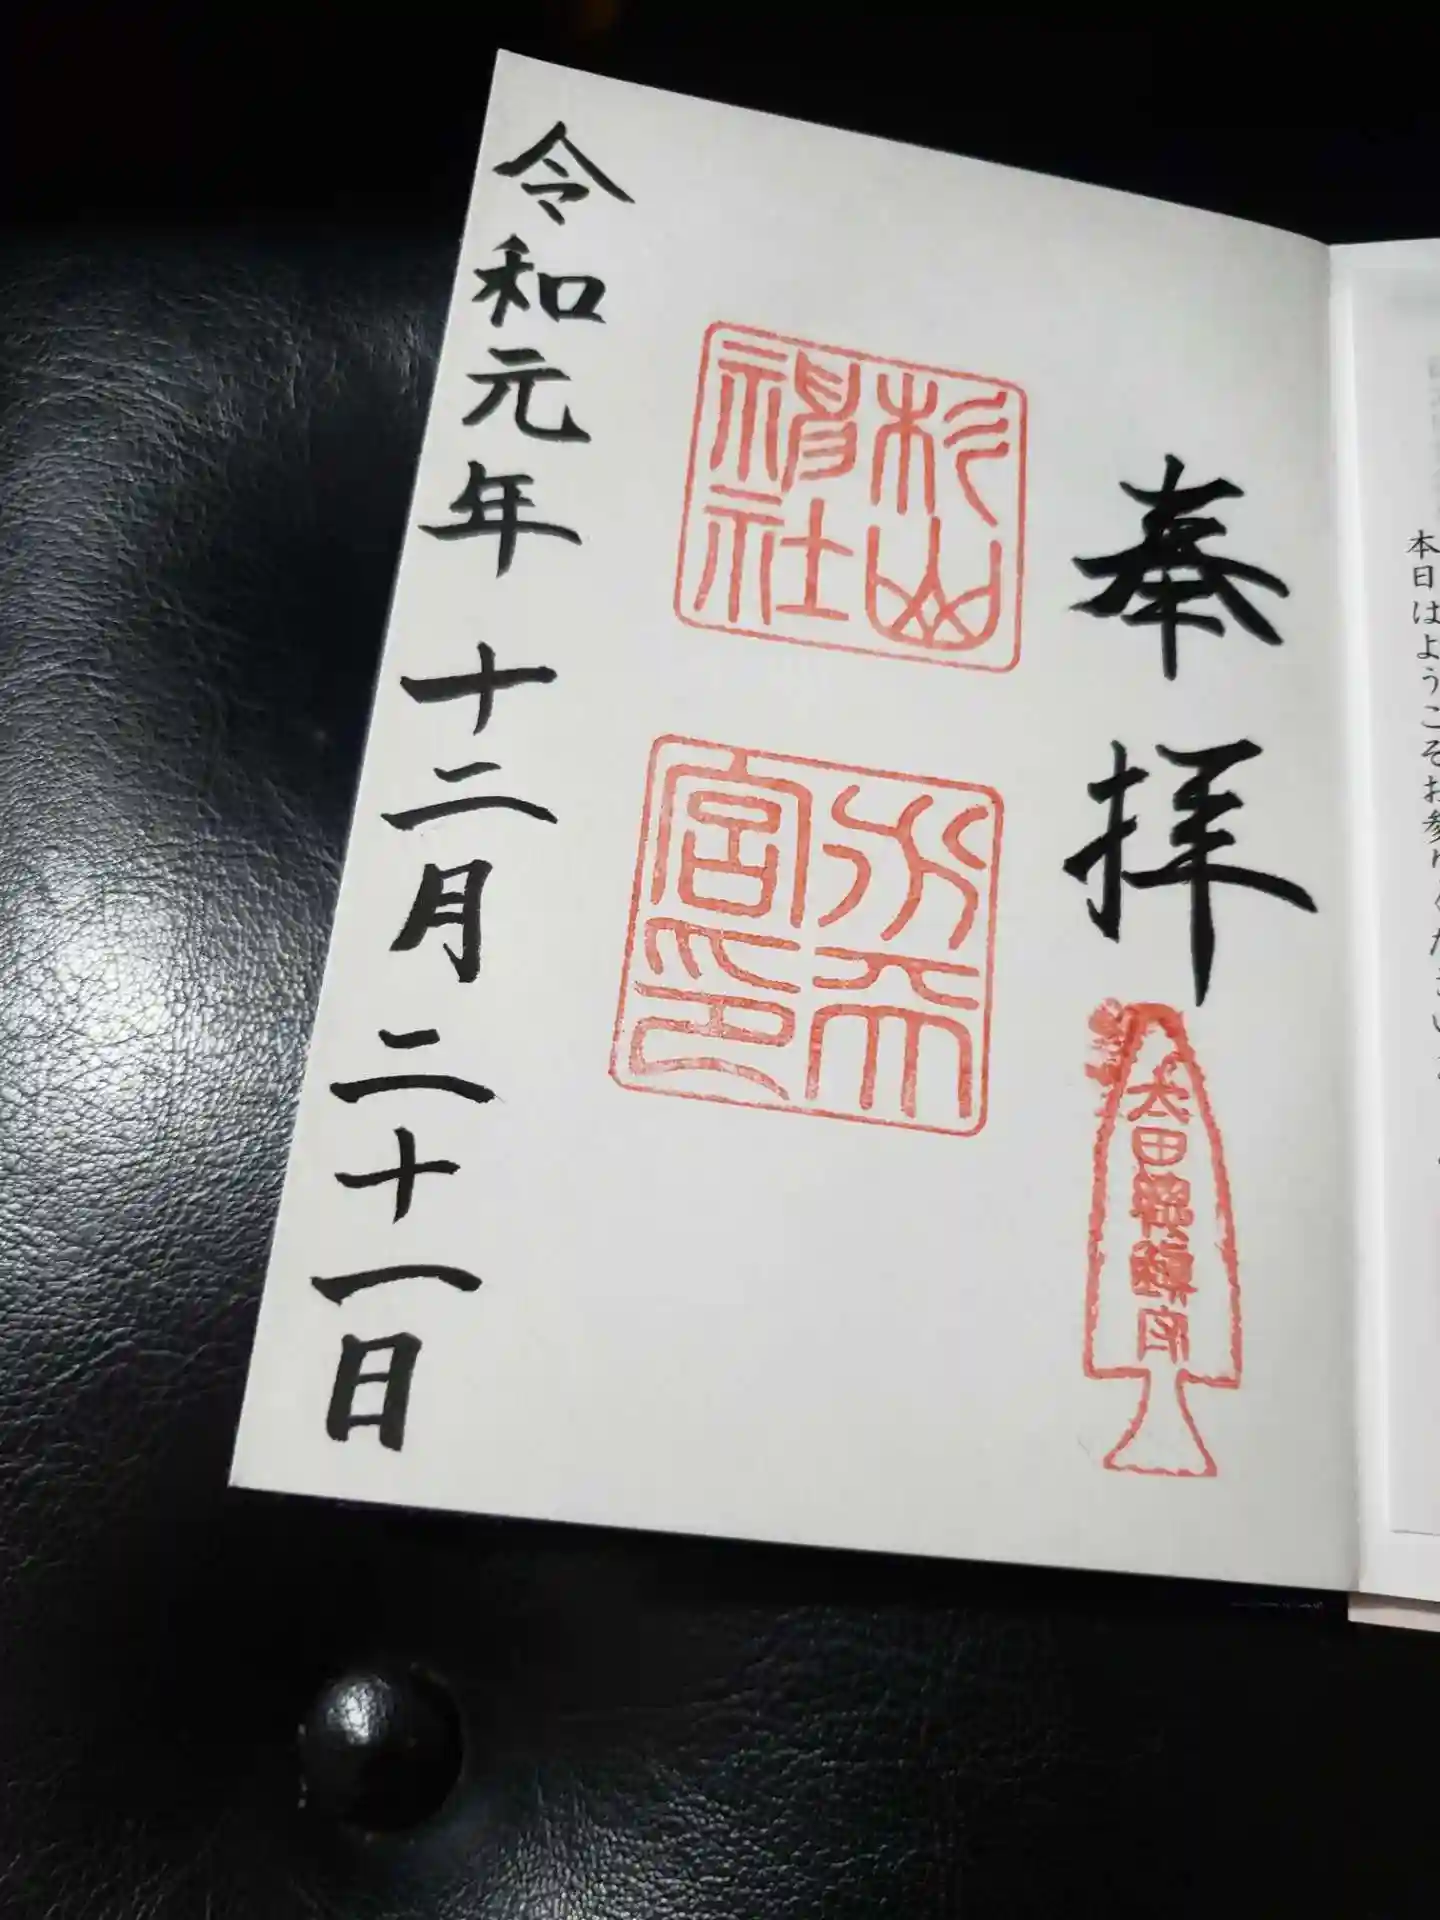 本日はようこそお参りくださいま
奉拝
太田総鎮守
杉山
神社
水天
宮印
令和元年 十二月 二十一日